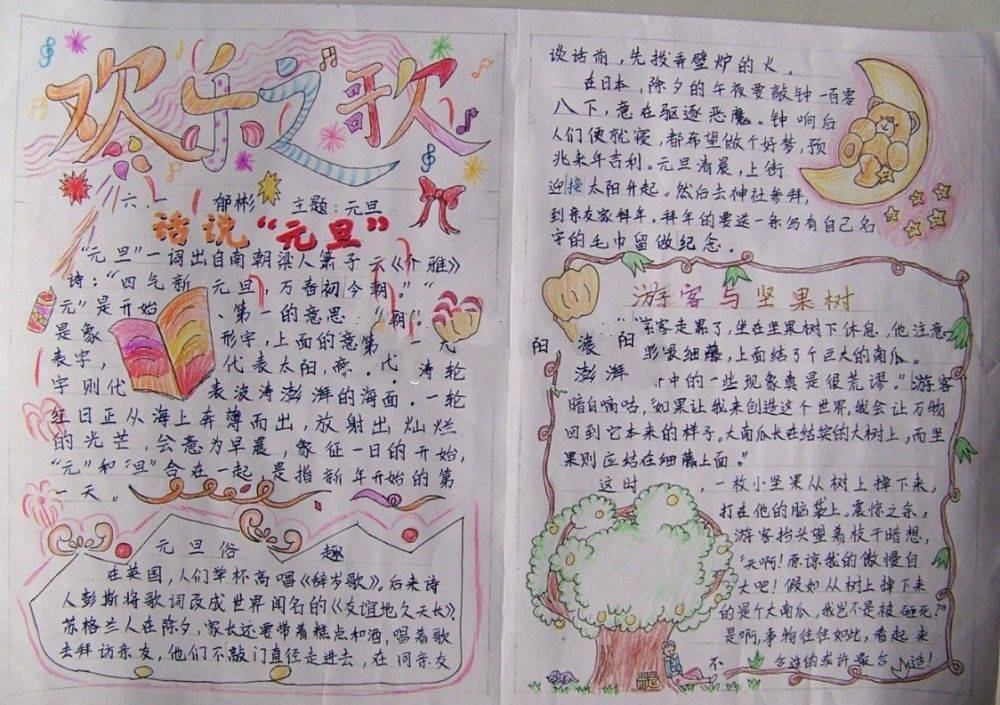 欢乐之歌
六. 郁彬 主题:元旦
话说“元旦”
“元旦”一词出自南朝梁人萧子云《介雅》
诗:“四气新元旦,万春初今朝.”“
元”是开始、第一的意思.
是象形字,上面的意第一
表字,代表太阳,
字则代表波涛澎湃的海面.一轮
红日正从海上奔薄而出,放射出灿烂
的光芒,会意为早晨,象征一日的开始,
“元”和“旦”合在一起,是指新年开始的第
一天。
元旦俗趣
在英国,人们举杯高唱《辞岁歌》。后来诗
人彭斯将歌词改成世界闻名的《友谊地久天长》.
苏格兰人在除夕,家长还要带着糕点和酒,唱着歌
去拜访亲友,他们不敲门直径走进去,在同亲友
谈话前,先拨弄壁炉的火。
在日本,除夕的午夜要敲钟一百零
八下,意在驱逐恶魔。钟响后
人们便就寝,都希望做个好梦,预
兆来年吉利。元旦清晨,上街
迎接太阳升起。然后去神社参拜,
到亲友家拜年。拜年的要送一条写有自己名
字的毛巾留做纪念.
游客与坚果树
客走累了,坐在坚果树下休息,他注意
细藤,上面结了个巨大的南瓜.
中的一些现象真是很荒谬.”游客
暗自嘀咕,“如果让我来创造这个世界,我会让万物
回到它本来的样子。大南瓜长在结实的大树上,而坚
果则应结在细藤上面.”
这时,一枚小坚果从树上掉下来,
打在他的脑袋上。震惊之余,
游客抬头望着枝干暗想,
“天啊!原谅我的傲慢自
大吧!假如从树上掉下来
的是个大南瓜,我岂不是被砸死?”
是啊,事物往往如此,看起来
不合适的或许最合适!